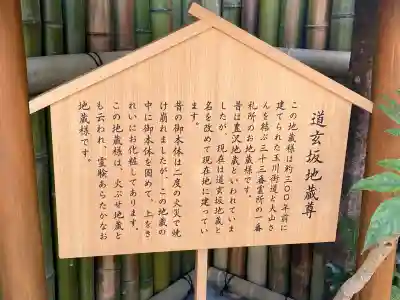 道玄坂地蔵尊
この地蔵様は約三〇〇年前に
建てられた玉川街道と大山さ
んを結ぶ三十三番霊所の一番
札所のお地蔵様です。
昔は豊沢地蔵といわれていま
したが、現在は道玄坂地蔵と
名を改めて現在地に建ってい
ます。
昔の御本体は二度の火災で焼
け崩れましたが、この地蔵の
中に御本体を固めて、上をき
れいにお化粧してあります。
この地蔵様は、火ぶせ地蔵と
も云われ、霊験あらたかなお
地蔵様です。